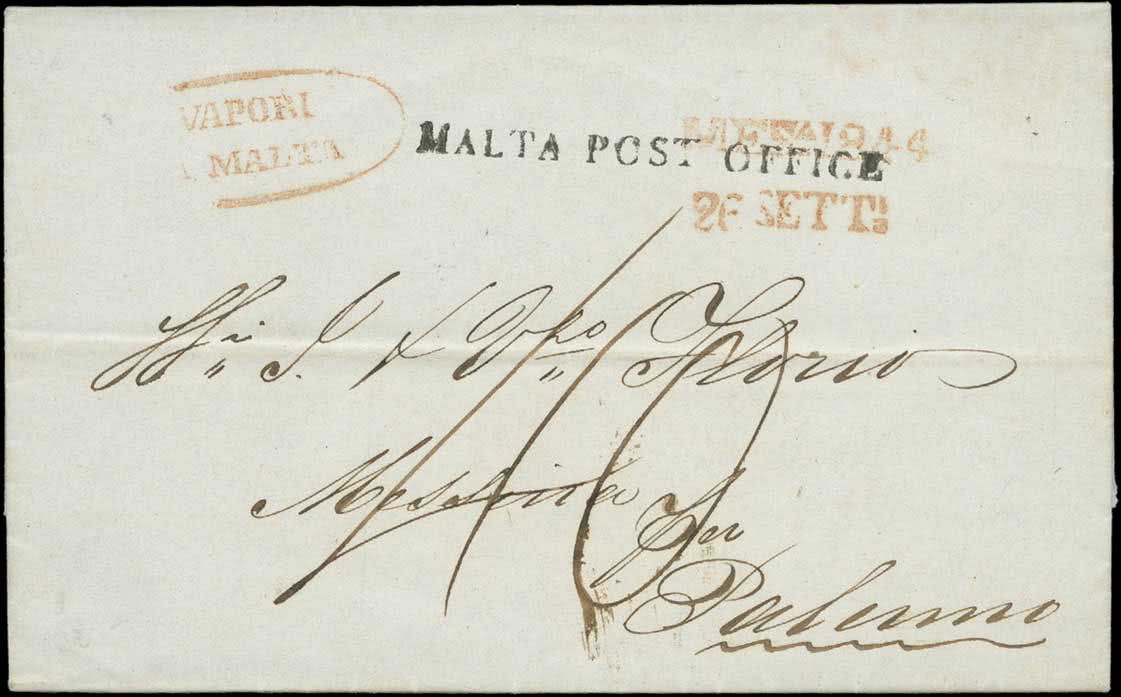 VAPORI
MALTA
MALTA POST OFFICE
1844
26 SETT:
J. & V Florio
Messina
per
Palermo